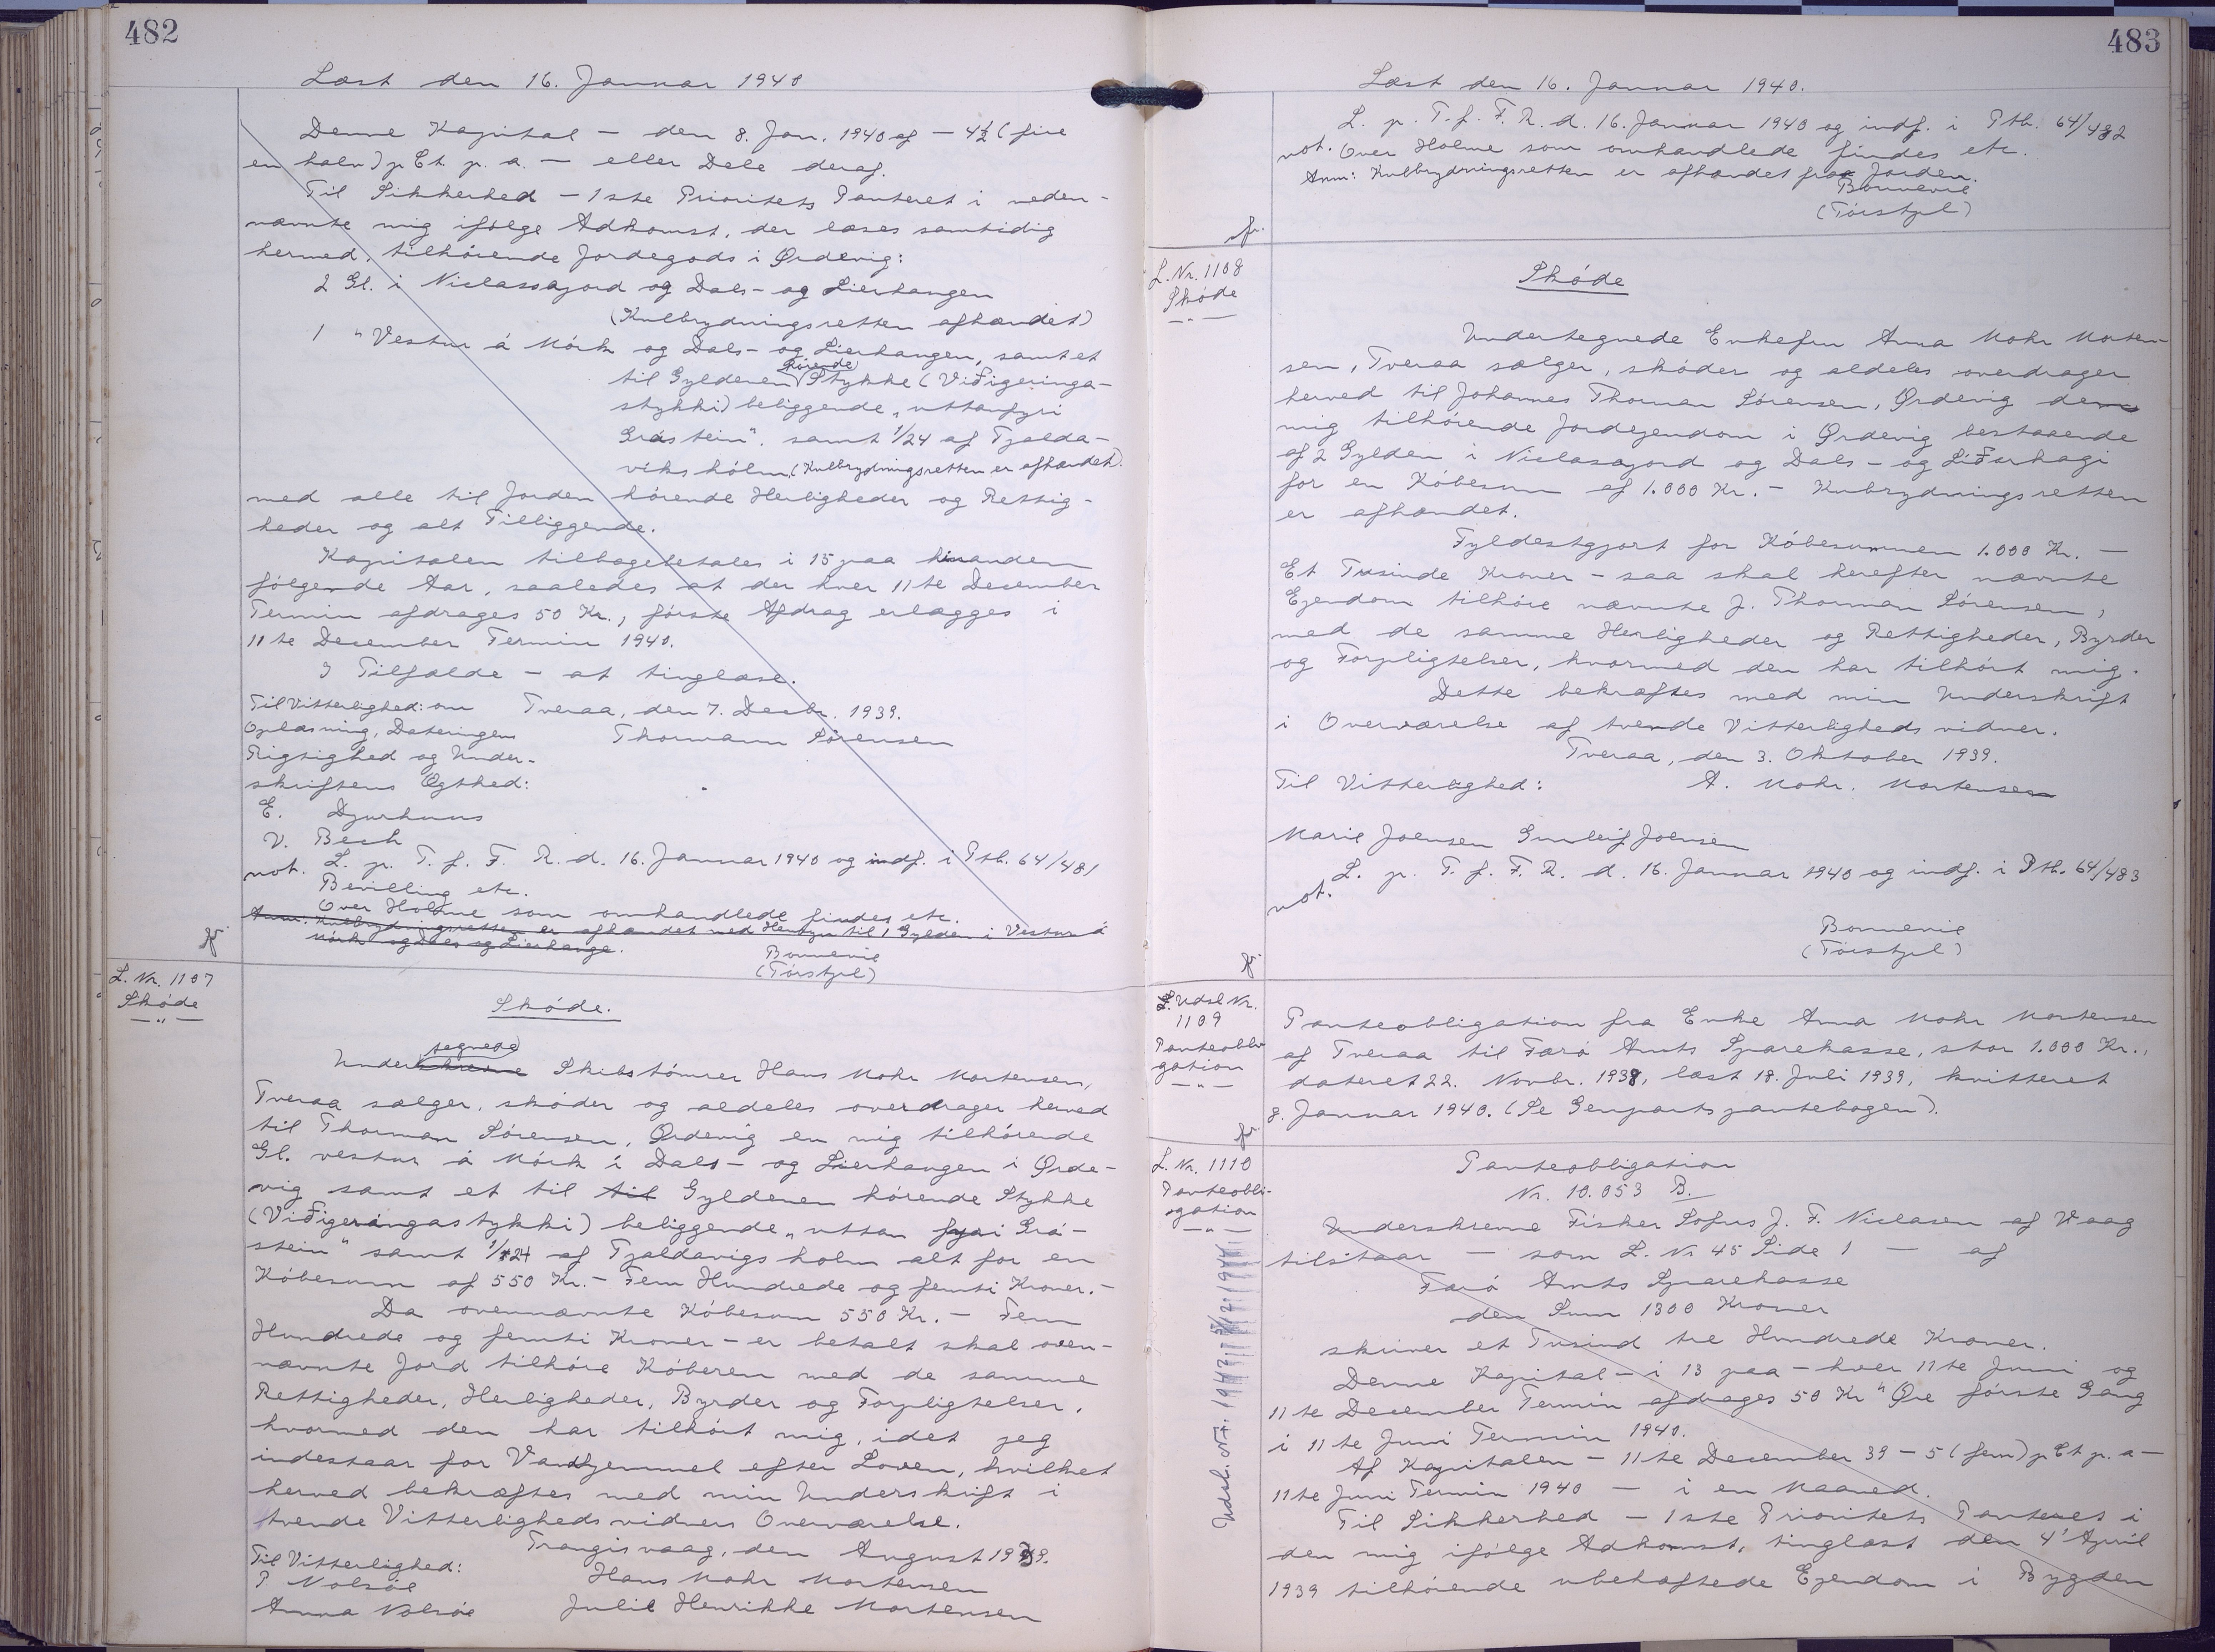 482
Læst den 16. Januar 1940
Denne Kapital — den 8. Jan. 1940 af — 4½ (fire
en halv) p Ct. p. a. — eller Dele deraf.
Til Sikkerhed — 1ste Prioritets Panteret i neden-
nævnte mig ifølge Adkomst, der læses samtidig
hermed, tilhörende Jordegods i Ørdevig:
2 Gl. i Niclassajord og Dals- og Lierhangen
(Kulbrydningsretten afhændet)
1 " Vestur á Mörk og Dals- og Lierhangen, samt et
til Gyldenen hörende Stykke (Viðigeringa-
stykki) beliggende "uttanfyri
Grástein". samt 1/24 af Tjalda-
vikshólm. (Kulbrydningsretten er afhændet).
med alle til Jorden hörende Herligheder og Rettig-
heder og alt Tilliggende.
Kapitalen tilbagebetales i 15 paa hinanden
følgende Aar, saaledes at der hver 11te December
Termin afdrages 50 Kr., første Afdrag erlægges i
11te December Termin 1940.
I Tilfælde — at tinglæse.
Til Vitterlighed: om Tveraa, den 7. Decbr. 1939.
Oplæsning, Dateringens Thormann Sørensen
Rigtighed og Under-
skriftens Ægthed:
E. Djurhuus
V. Bech
not. L. p. T. f. F. R. d. 16. Januar 1940 og indf. i Ptb. 64/481
Bevilling etc.
Over Holme som omhandlede findes etc.
Anm. Kulbrydningsretten er afhændet med Hensyn til 1 Gylden i Vestur á
Mörk og Dals og Lierhange.
Bonnevie
(Tórstjel)
L. Nr. 1107
Sköde
Sköde.
Underskrevne tegnede Skibstömrer Hans Mohr Mortensen,
Tveraa sælger, sköder og aldeles overdrager herved
til Thorman Sörensen, Ørdevig en mig tilhörende
Gl. vestur á Mörk i Dals- og Lierhangen i Ørde-
vig samt et til til Gyldenen hörende Stykke
(Viðigerángastykki) beliggende "uttan fyri Grá-
stein" samt 1/24 af Tjaldavigsholm alt for en
Köbesum af 550 Kr. — Fem Hundrede og femti Kroner. —
Da ovennævnte Köbesum 550 Kr. — Fem
Hundrede og femti Kroner — er betalt skal oven-
nævnte Jord tilhöre Köberen med de samme
Rettigheder, Herligheder, Byrder og Forpligtelser,
hvormed den har tilhört mig, idet jeg
indestaar for Vanhjemmel efter Loven, hvilket
herved bekræftes med min Underskrift i
tvende Vitterlighedsvidners Overværelse.
Trangisvaag, den August 1939.
Til Vitterlighed: Hans Mohr Mortensen
P. Nolsöe
Anna Nolsöe Julie Henrikke Mortensen
483
Læst den 16. Januar 1940.
L. p. T. f. F. R. d. 16. Januar 1940 og indf. i Ptb. 64/482
not. Over Holme som omhandlede findes etc.
Anm: Kulbrydningsretten er afhændet fra Jorden.
Bonnevie
(Tórstjel)
L. Nr. 1108
Sköde
Sköde
Undertegnede Enkefru Anna Mohr Morten-
sen, Tveraa sælger, sköder og aldeles overdrager
herved til Johannes Thorman Sörensen, Ørdevig den
mig tilhörende Jordejendom i Ørdevig bestaaende
af 2 Gylden i Niclasajord og Dals- og Liðurhagi
for en Köbesum af 1.000 Kr. — Kulbrydningsretten
er afhændet.
Fyldestgjort for Köbesummen 1.000 Kr. —
Et Tusinde Kroner — saa skal herefter nævnte
Ejendom tilhöre nævnte J. Thorman Sörensen,
med de samme Herligheder og Rettigheder, Byrder
og Forpligtelser, hvormed den har tilhört mig.
Dette bekræftes med min Underskrift
i Overværelse af tvende Vitterlighedsvidner.
Tveraa, den 3. Oktober 1939.
Til Vitterlighed: A. Mohr. Mortensen
Marie Joensen Gunleif Joensen
not. L. p. T. f. F. R. d. 16. Januar 1940 og indf. i Ptb. 64/483
Bonnevie
(Tórstjel)
L. Udsl Nr.
1109
Panteobli-
gation
Panteobligation fra Enke Anna Mohr Mortensen
af Tveraa til Færö Amts Sparekasse, stor 1.000 Kr.,
dateret 22. Novbr. 1938, læst 18. Juli 1939, kvitteret
8. Januar 1940. (Se Genpartspantebogen).
L. Nr. 1110
Panteobli-
gation
Panteobligation
Nr. 10.053 B.
Underskrevne Fisker Sofus J. F. Niclasen af Vaag
tilstaar — som L. Nr 45 Side 1 — af
Færö Amts Sparekasse
den Sum 1300 Kroner
skriver et Tusind tre Hundrede Kroner.
Denne Kapital — i 13 paa — hver 11te Juni og
11te December Termin afdrages 50 Kr " Øre förste Gang
i 11te Juni Termin 1940.
Af Kapitalen — 11te December 39 — 5 (fem) p Ct p. a —
11te Juni Termin 1940 — i en Maaned.
Til Sikkerhed — 1ste Prioritets Panteret i
den mig ifölge Adkomst, tinglæst den 4' April
1939 tilhörende ubehæftede Ejendom i Bygden